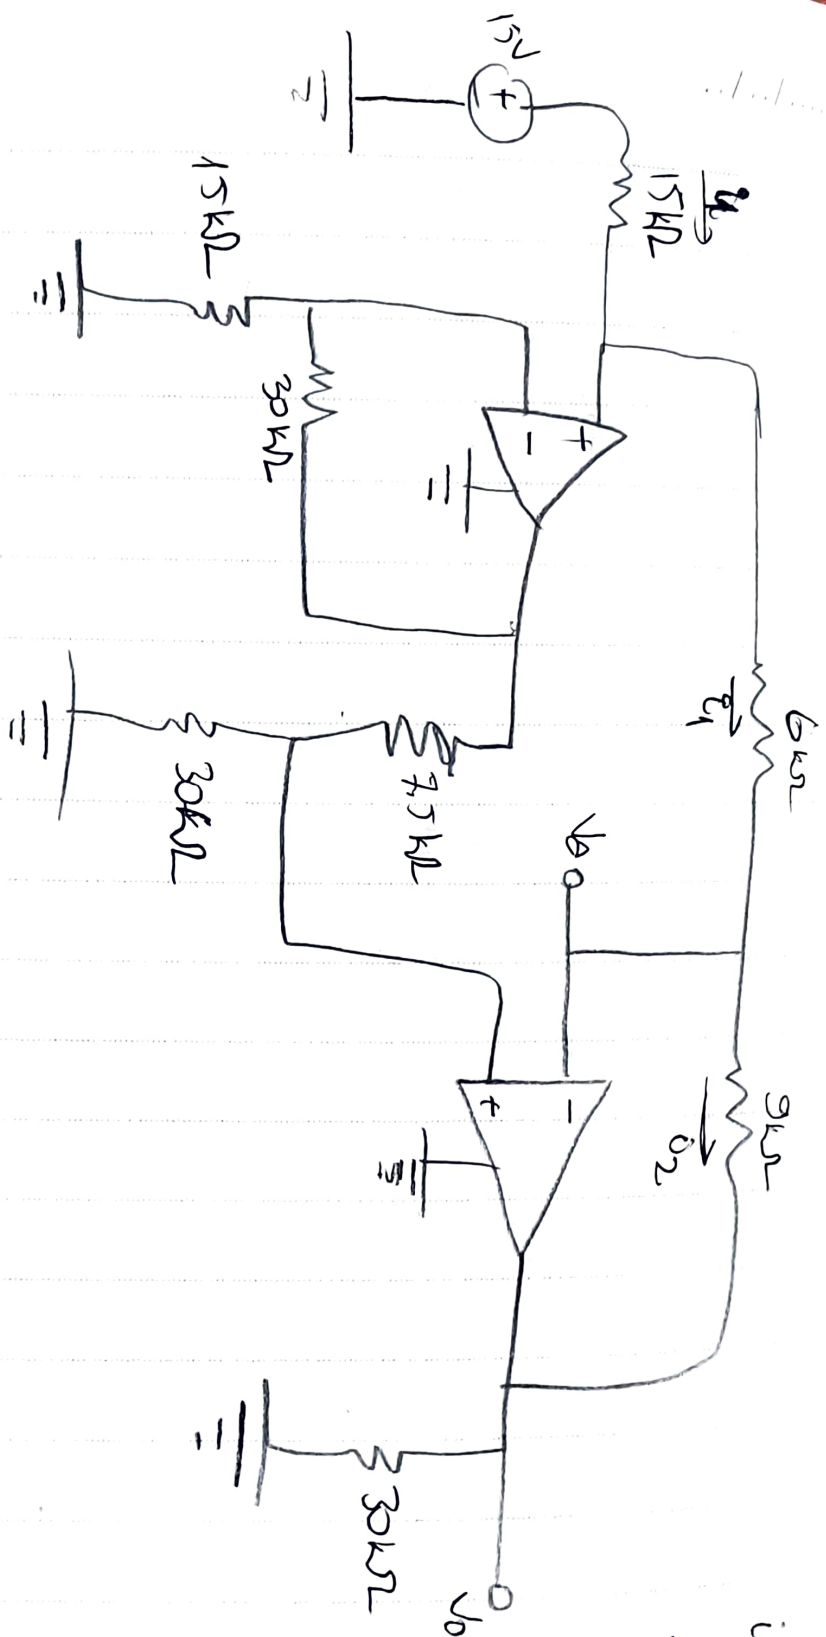 15V
+
i
15kΩ
15kΩ
30kΩ
+
−
6kΩ
i1
7,5kΩ
30kΩ
Va
9kΩ
i2
−
+
30kΩ
Vo